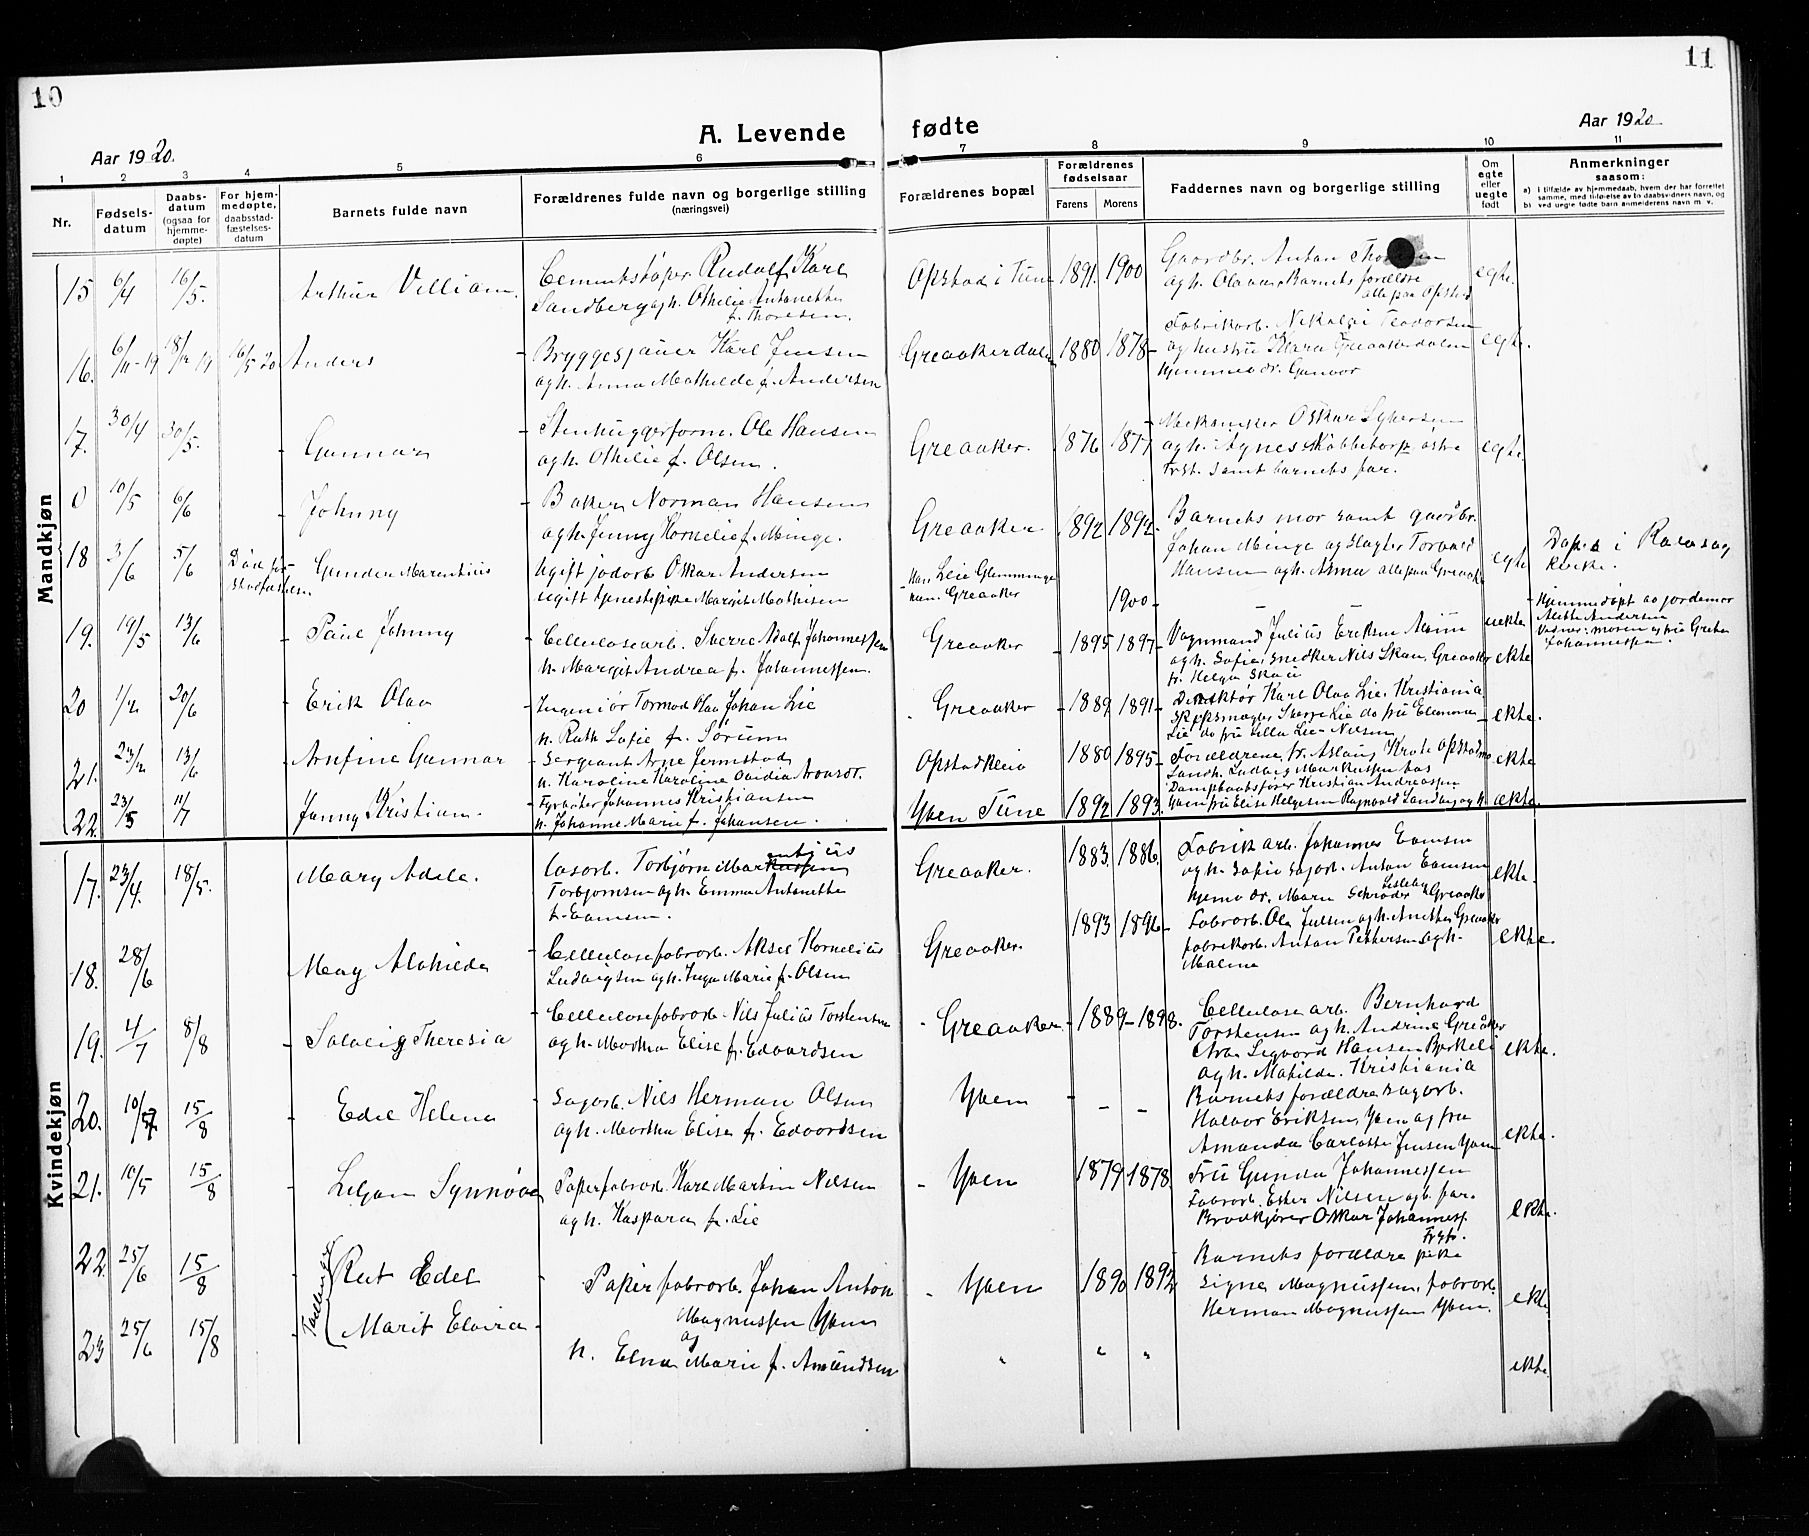 10
11
A. Levende fødte
Aar 1920.
Aar 1920
1 2 3 4 5 6 7 8 9 10 11
Nr.
Fødsels-datum
Daabs-datum (ogsaa for hjemme-døpte)
For hjem-medøpte, daabsstad-fæstelses-datum
Barnets fulde navn
Forældrenes fulde navn og borgerlige stilling (næringsvei)
Forældrenes bopæl
Forældrenes fødselsaar
Farens Morens
Faddernes navn og borgerlige stilling
Om egte eller uegte født
Anmerkninger saasom:
a) i tilfælde av hjemmedaab, hvem der har forrettet samme, med tilføielse av to daabsvidners navn, og
b) ved uegte fødte barn anmelderens navn m. v.
Mandkjøn
15 6/4 16/5. Arthur Villiam. Cementstøper Rudolf Karl Opstad i Tune 1891. 1900 Gaardbr. Anton egte.
Sandberg og h. Othilie Antonette og h. Olava, Barnets forældre
f. Thoresen. alle paa Opstad
16. 6/11-19 18/12 19 16/5 20 Anders Bryggesjauer Karl Jensen Greaakerdalen 1880 1878 Fabrikarb. Nikolai Teodorsen egte.
og h. Anna Mathilde f. Andersen og hustru Klara Greaakerdalen
Hjemmev. Gunvor
17. 30/4 30/5. Gunnar Stenhuggerform. Ole Hansen Greaaker. 1876 1877 Mekaniker Oskar egte.
og h. Othilie f. Olsen. og h. Agnes
Frst. samt barnets far.
0 10/5 6/6 Johnny Baker Norman Hansen Greaaker 1892 1892 Barnets mor samt gaardbr. egte
og h. Jenny Kornelie f. Minge. Johan Minge og Slagter Torvald
Hansen og h. Anna alle paa Greaaker
18 3/6 5/6 Død før stadfæstelsen Gunder Marentius Ugift jodarb. Oskar Andersen Han Leie Glemminge 1900 Døpt i Kirke.
ugift tjenestepike Margit Mathisen hun. Greaaker uekte
19. 19/5 13/6 Paul Johnny Cellulosearb. Sverre Adolf Johannessen Greaaker 1895 1897 Vognmand Julius Eriksen ekte Hjemmedøpt av jordemor
h. Margit Andrea f. Johannessen. og h. Sofie, Snedker Nils Skau, Greaaker Andersen
fr. Helga Skau Vidner: moren og fru Grethe Johannessen.
20 1/2 20/6 Erik Olav Ingeniør Tormod Olav Johan Lie Greaaker 1889 1891 Direktør Karl Olav Lie. Kristiania ekte.
h. Ruth Sofie f. Sørum Skipsmægler Sverre Lie do fru Eleonora
Lie do fru Ulla Lie-Nielsen
21. 23/2 13/6 Arnfinn Gunnar Sergeant Arne Jermstad Opstad 1880 1895 Forældrene, fr. Aslaug Opstad ekte
h. Karoline Karoline Ovidia Landh. Ludvig Markussen
22. 23/5 11/7 Jonny Kristian. Fyrbøter Johannes Kristiansen Yven Tune 1892 1893. Dampbaatsfører Kristian Andreassen ekte.
h. Johanne Marie f. Johansen. Yven fru Elise Helgesen Ragnvald Sandberg og h.
Kvindekjøn
17. 23/4 18/5. Mary Adele. Torbjørn Marentius Greaaker. 1883. 1886. Fabrikarb. Johannes Eamsen ekte.
Torbjørnsen og h. Emma Antonette og h. Sofie Sagarb. Anton Eamsen
f. Eamsen. Hjemv. Marie Schrøder Greaaker
18. 28/6 May Alvhilde Cellulosefabrarb. Aksel Kornelius Greaaker. 1893 1896 Fabrarb. Ole Julsen og h. Anette, Greaaker ekte.
Ludvigsen og h. Inga Marie f. Olsen fabrikarb. Anton Pettersen og h.
Malene
19. 4/7 8/8 Solveig Theresia Cellulosefabrarb. Nils Julius Torstensen Greaaker. 1889 1898. Cellulosearb. Bernhard ekte.
og h. Martha Elise f. Edvardsen Torstensen og h. Andrine Greåker
Arb. Sigvard Hansen Bjerkeli
og h. Matilde. Kristiania
20. 10/7 15/8 Edel Helena Sagarb. Nils Herman Olsen Yven - - - Barnets forældre sagarb. ekte.
og h. Martha Elise f. Edvardsen Halvor Eriksen, Yven og fru
Amanda Carlotte Jensen Yven
21. 10/5 15/8 Liljan Synnøve Papirfabrarb. Karl Martin Nilsen Yven 1879 1878. Fru Gunda Johannessen ekte.
og h. Kaspara f. Lie Fabrarb. Ester Nilsen og b. far.
Brødkjører Oskar Johannes.
22. 25/6 15/8 Rut Edel Papirfabrarb. Johan Anton Yven 1890 1892 Barnets forældre pike ekte
Tvillinger
Magnussen Yven og Signe Magnussen, fabrarb.
Herman Magnussen Yven.
23 25/6 15/8 Marit Elvira h. Elna Marie f. Amundsen " " " ekte.